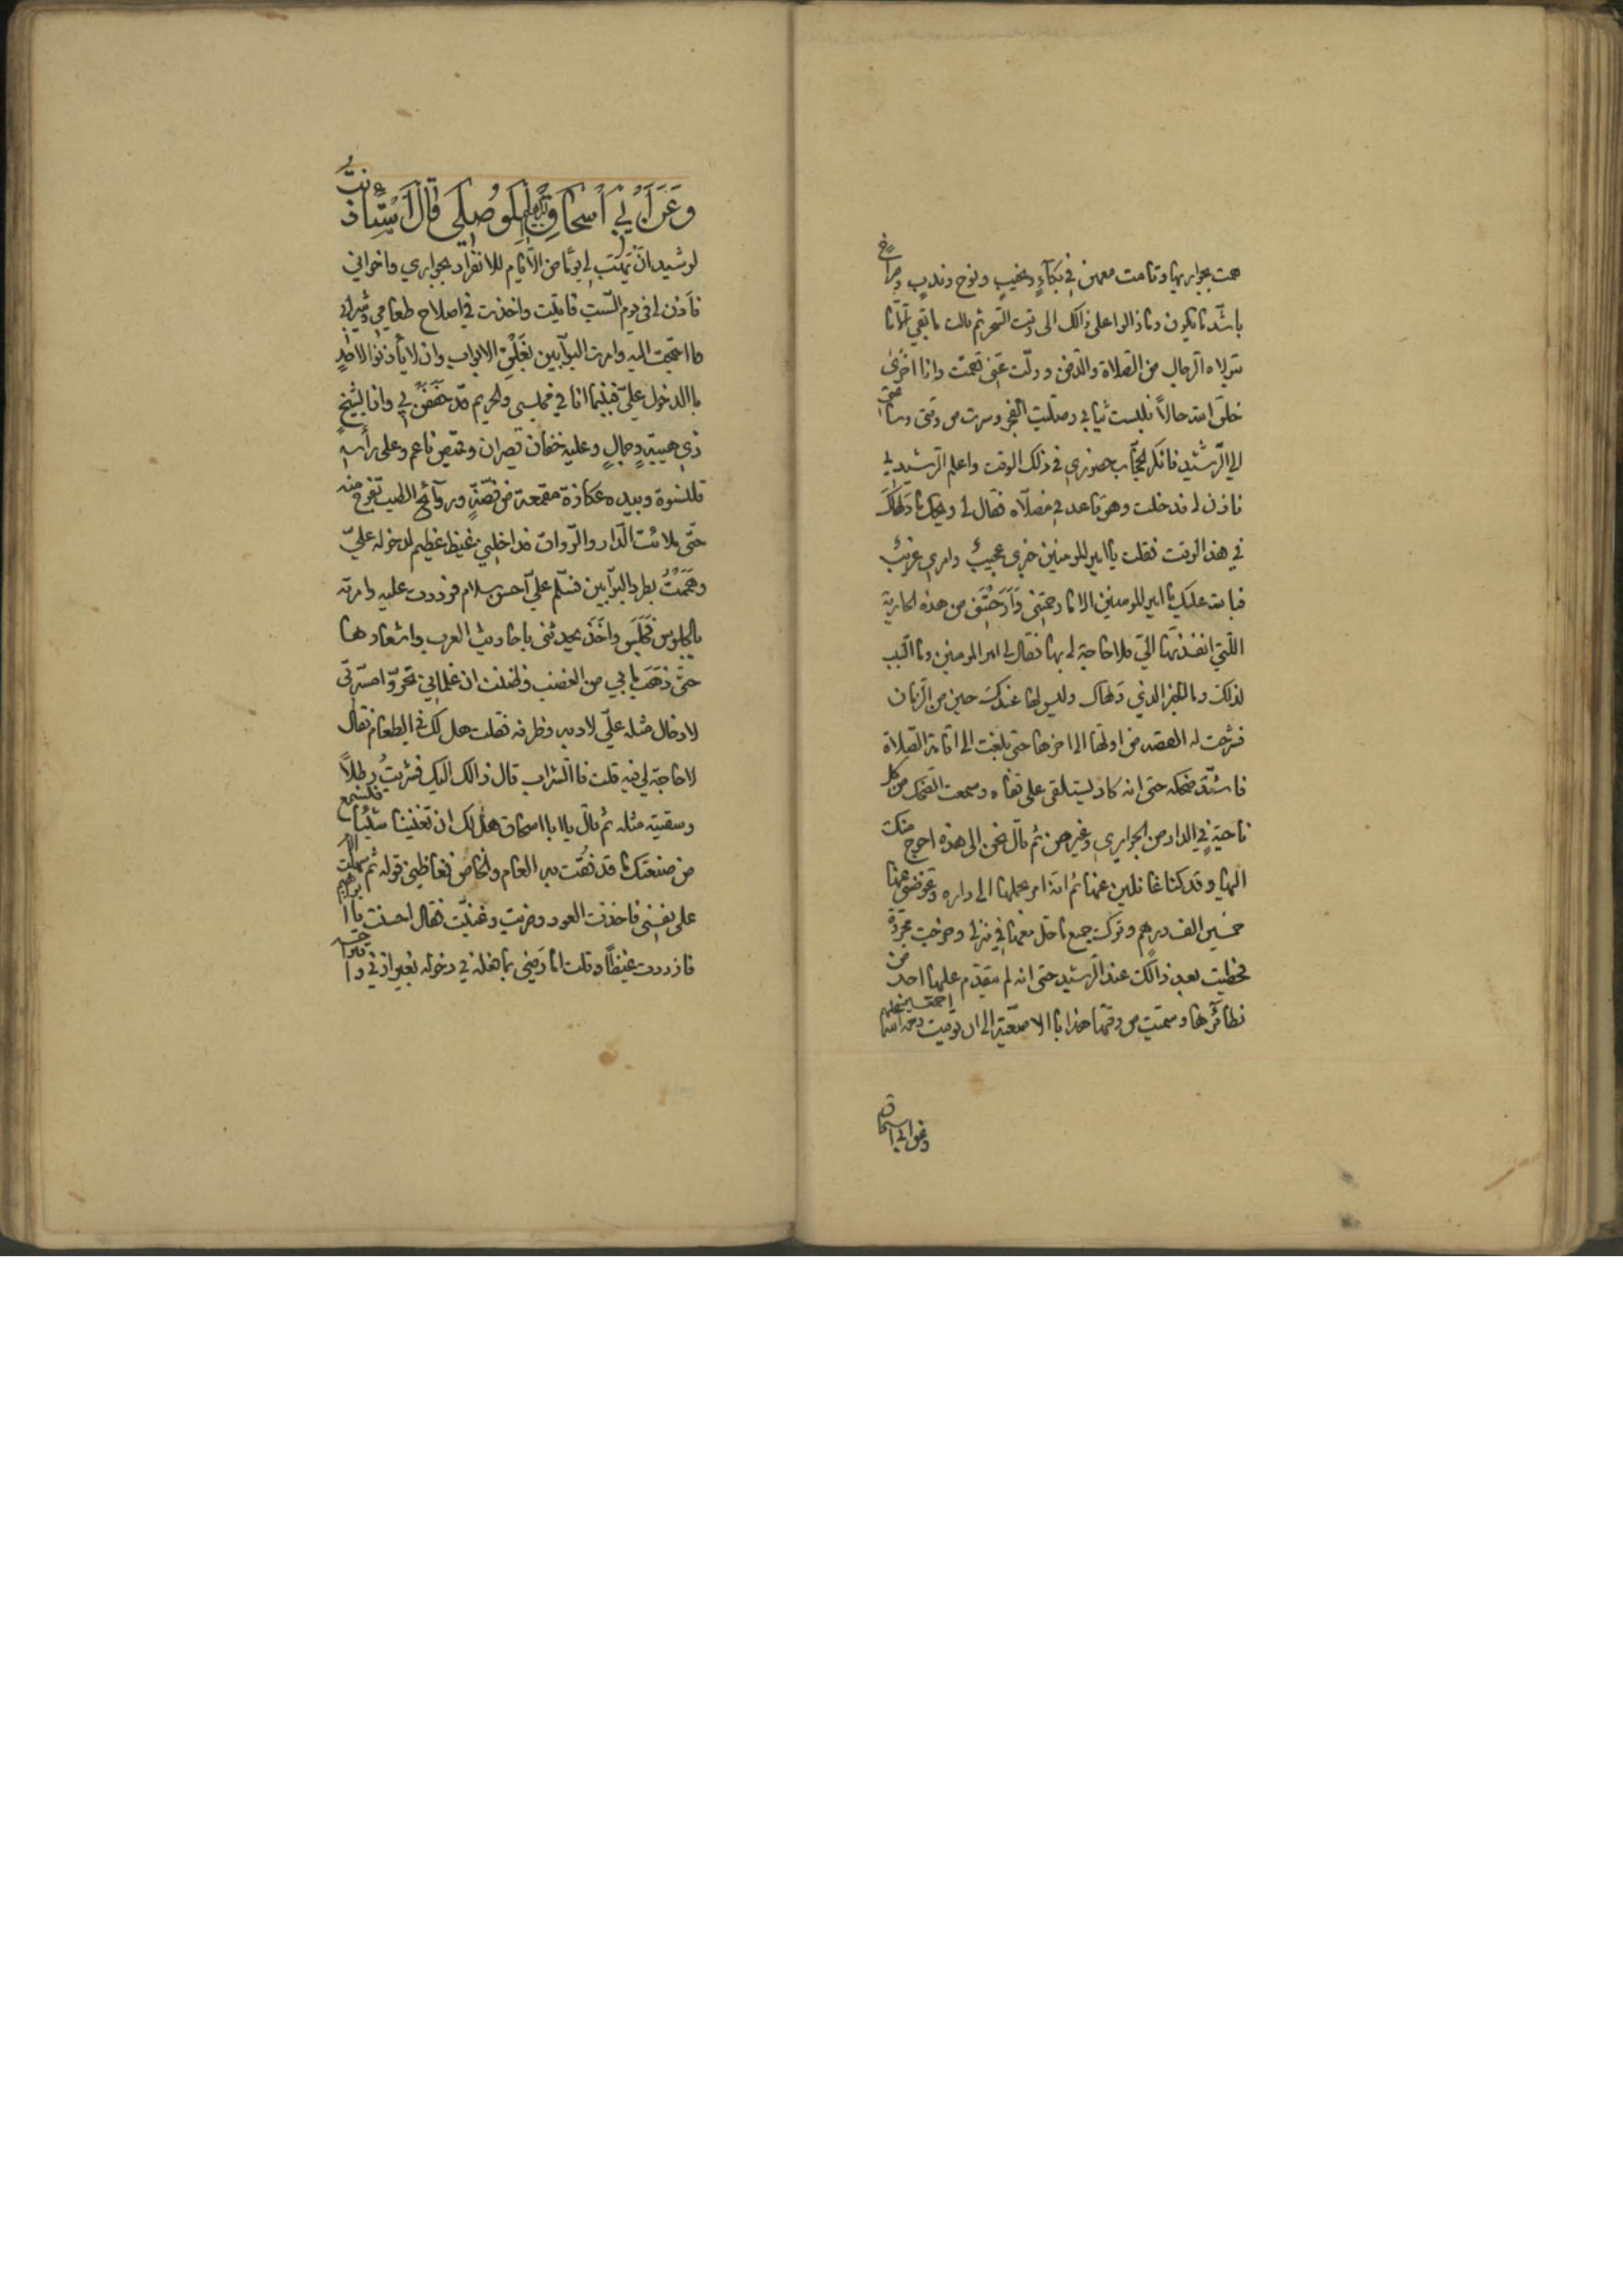 همت بجواريها وقامت معهن في بكآءٍ ونحيبٍ ونوح وندبٍ وصراخ
باشّد ما يكون وما زالوا على ذالك الى وقت السّحر ثم قالت ما بقي الّا ما
يتولاه الرجال من الصّلاة والدّفن وولّت عنّي فقمت وانا اخزى
خلق الله حالاً فلبست ثيابي وصلّيت الفجر وسرت من وقتي وساعتي
الي الرّشيد فانكر الحجّاب حضوري في ذلك الوقت واعلم الرّشيد بي
فاذن لي فدخلت وهو قاعد في مصلّاه فقال لي ويحك ما دهاك
في هذا الوقت فقلت يا امير المومنين خبري عجيبٌ وامري غريبٌ
فبالله عليك يا امير المومنين الا ما رحمتني وَاَرَحْتَني من هذه الجارية
اللّتي انفذتها الّي فلا حاجة لي بها فقال لي امير المومنين وما السّبب
لذلك وما الخبر الذي دهاك وليس لها عندك حين من الزّمان
فشرحت له القصّه من اولها الى اخرها حتى بلغت الى اقامة الصّلاة
فاشتّد ضحكه حتى انه كاد يستلقى على قفاه وسمعت الضّحك من كل
ناحيةٍ في الدار من الجواري وغيرهن ثم قال نحن الى هذه احوج منك
اليها وقد كنّا غافلين عنها ثم انّه امر بحملها الى داره وعوضني عنها
خمسين الف درهم وتركت جميع ما حمل معها في منزلي وخرجت مجردة
فحظيت بعد ذالك عند الرّشيد حتى انه لم يتقدّم عليها احد من
نظآئرها وسمّيت من وقتها هذا بالاصمعيّة الى ان توفيت رحمة الله عليهم اجمعين
وعن ابي اسحاق
وعَنَ اَبْي اسْحَاق ابراهيم المَوصِلي قال اَسْتَاذنتُ
لرشيد انْ يَهَبَ لي يومًا من الاَيّام للانفراد بجواري واخواني
فأذن لي في يوم السّبت فاتيت واخذت في اصلاح طعامي وشرابي
وما احتجت اليه وامرت البوّابين بغَلْق الابواب وان لا يأذنوا لاحدٍ
بالدخول عليّ فبينما انا في مجلسي والحريم قد حَفَفنَ بي واذا بشيخٍ
ذي هيبةٍ وجمالٍ وعليه خفّان قصيران وقميص ناعم وعلى رأسه
قلنسوة وبيده عكّازة مقمعة من فضّةٍ وروآئح الطيب تفوح منه
حتّى ملائت الدّار والرّواق فداخلني غيظ عظيم لدخوله عليّ
وهَمَمْتُ بطرد البوّابين فسلّم عليّ احسن سلام فرددت عليه وامرته
بالجلوس فَجَلَسَ واَخَذَ يحدثني باحاديث العرب واشعارها
حتّى ذهَبَ ما بي من الغضب وظننت ان غلماني تحرّوا مسرّتي
لادخال مثله عليّ لادبه وظرفه فقلت هل لك في الطعام فقال
لا حاجة لي فيه قلت فالشراب قال ذالك اليك فشربتُ رطلاً
وسقيته مثله ثم قال يا ابا اسحاق هل لك ان تغنّينا شيئًا فنسمع
من صنعتك ما قد فُقت به العام والخاصّ فغاظني قوله ثم سهلت الامر
على نفسي فاخذت العود وضربت وغنيّت فقال احسنت يا ابراهيم
فازددت غيظًا وقلت اما رَضي بما فعله في دخوله بغير اذني و